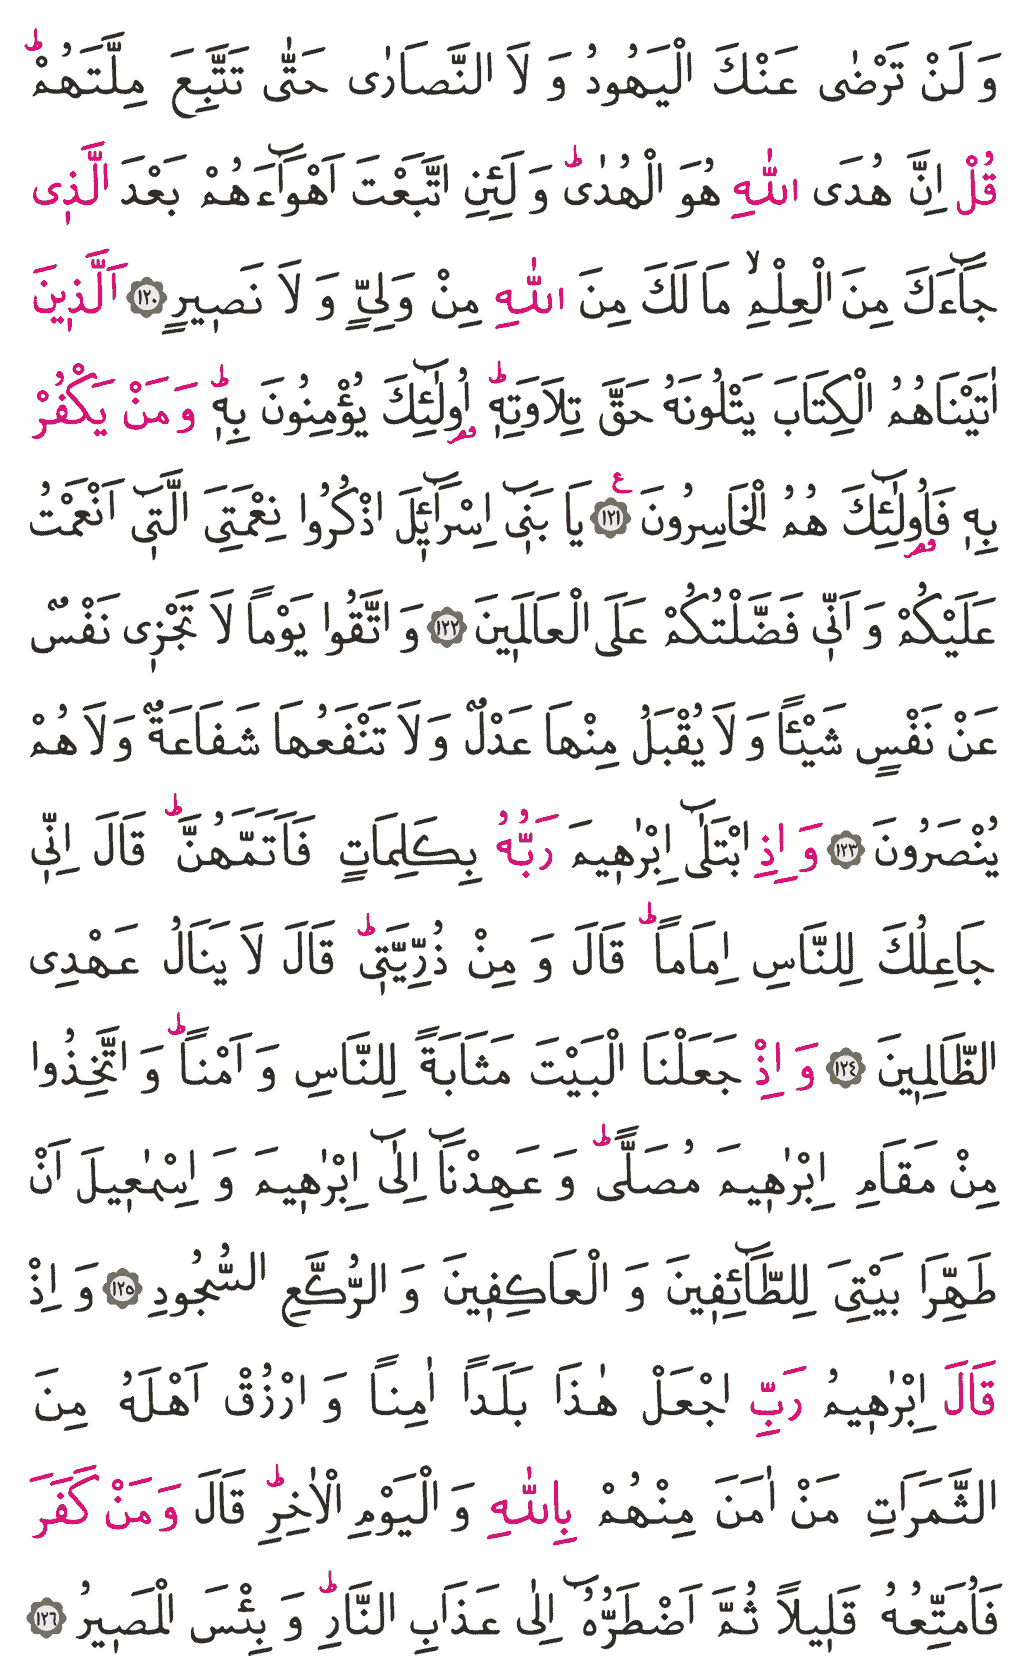 وَ لَنْ تَرْضٰى عَنْكَ الْيَهُودُ وَ لَا النَّصَارٰى حَتّٰى تَتَّبِعَ مِلَّتَهُمْ ؕ
قُلْ اِنَّ هُدَى اللّٰهِ هُوَ الْهُدٰىؕ وَ لَئِنِ اتَّبَعْتَ اَهْوَٓاءَهُمْ بَعْدَ الَّذٖى
جَٓاءَكَ مِنَ الْعِلْمِۙ مَا لَكَ مِنَ اللّٰهِ مِنْ وَلِىٍّ وَ لَا نَصٖيرٍ ﴿١٢٠﴾ اَلَّذٖينَ
اٰتَيْنَاهُمُ الْكِتَابَ يَتْلُونَهُ حَقَّ تِلَاوَتِهٖؕ اُو۬لٰٓئِكَ يُؤْمِنُونَ بِهٖؕ وَ مَنْ يَكْفُرْ
بِهٖ فَاُو۬لٰٓئِكَ هُمُ الْخَاسِرُونَ ﴿١٢١﴾ ع يَا بَنٖٓى اِسْرَٓائٖلَ اذْكُرُوا نِعْمَتِىَ الَّتٖٓى اَنْعَمْتُ
عَلَيْكُمْ وَ اَنّٖى فَضَّلْتُكُمْ عَلَى الْعَالَمٖينَ ﴿١٢٢﴾ وَ اتَّقُوا يَوْمًا لَا تَجْزٖى نَفْسٌ
عَنْ نَفْسٍ شَيْئًا وَ لَا يُقْبَلُ مِنْهَا عَدْلٌ وَ لَا تَنْفَعُهَا شَفَاعَةٌ وَ لَا هُمْ
يُنْصَرُونَ ﴿١٢٣﴾ وَ اِذِ ابْتَلٰٓى اِبْرٰهٖيمَ رَبُّهُ بِكَلِمَاتٍ فَاَتَمَّهُنَّ ؕ قَالَ اِنّٖى
جَاعِلُكَ لِلنَّاسِ اِمَامًا ؕ قَالَ وَ مِنْ ذُرِّيَّتٖىؕ قَالَ لَا يَنَالُ عَهْدِى
الظَّالِمٖينَ ﴿١٢٤﴾ وَ اِذْ جَعَلْنَا الْبَيْتَ مَثَابَةً لِلنَّاسِ وَ اَمْنًاؕ وَ اتَّخِذُوا
مِنْ مَقَامِ اِبْرٰهٖيمَ مُصَلًّىؕ وَ عَهِدْنَٓا اِلٰٓى اِبْرٰهٖيمَ وَ اِسْمٰعٖيلَ اَنْ
طَهِّرَا بَيْتِىَ لِلطَّٓائِفٖينَ وَ الْعَاكِفٖينَ وَ الرُّكَّعِ السُّجُودِ ﴿١٢٥﴾ وَ اِذْ
قَالَ اِبْرٰهٖيمُ رَبِّ اجْعَلْ هٰذَا بَلَدًا اٰمِنًا وَ ارْزُقْ اَهْلَهُ مِنَ
الثَّمَرَاتِ مَنْ اٰمَنَ مِنْهُمْ بِاللّٰهِ وَ الْيَوْمِ الْاٰخِرِؕ قَالَ وَ مَنْ كَفَرَ
فَاُمَتِّعُهُ قَلٖيلًا ثُمَّ اَضْطَرُّهُٓ اِلٰى عَذَابِ النَّارِؕ وَ بِئْسَ الْمَصٖيرُ ﴿١٢٦﴾